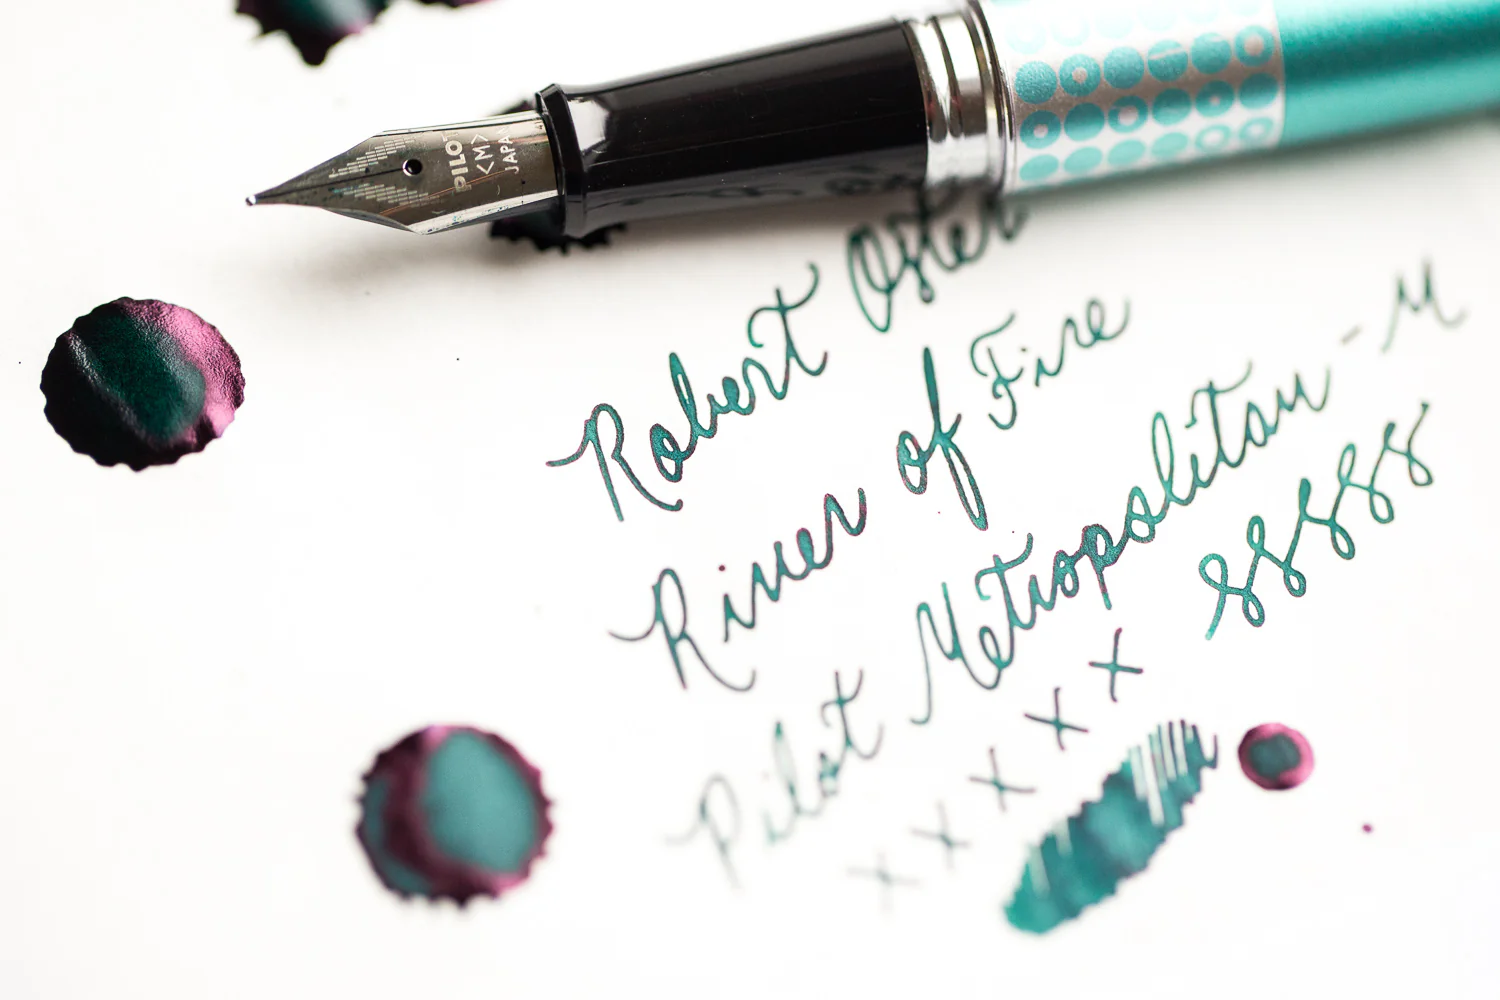 PILOT
<M>
JAPAN
Robert Oster
River of Fire
Pilot Metropolitan - M
x x x x x
ssss